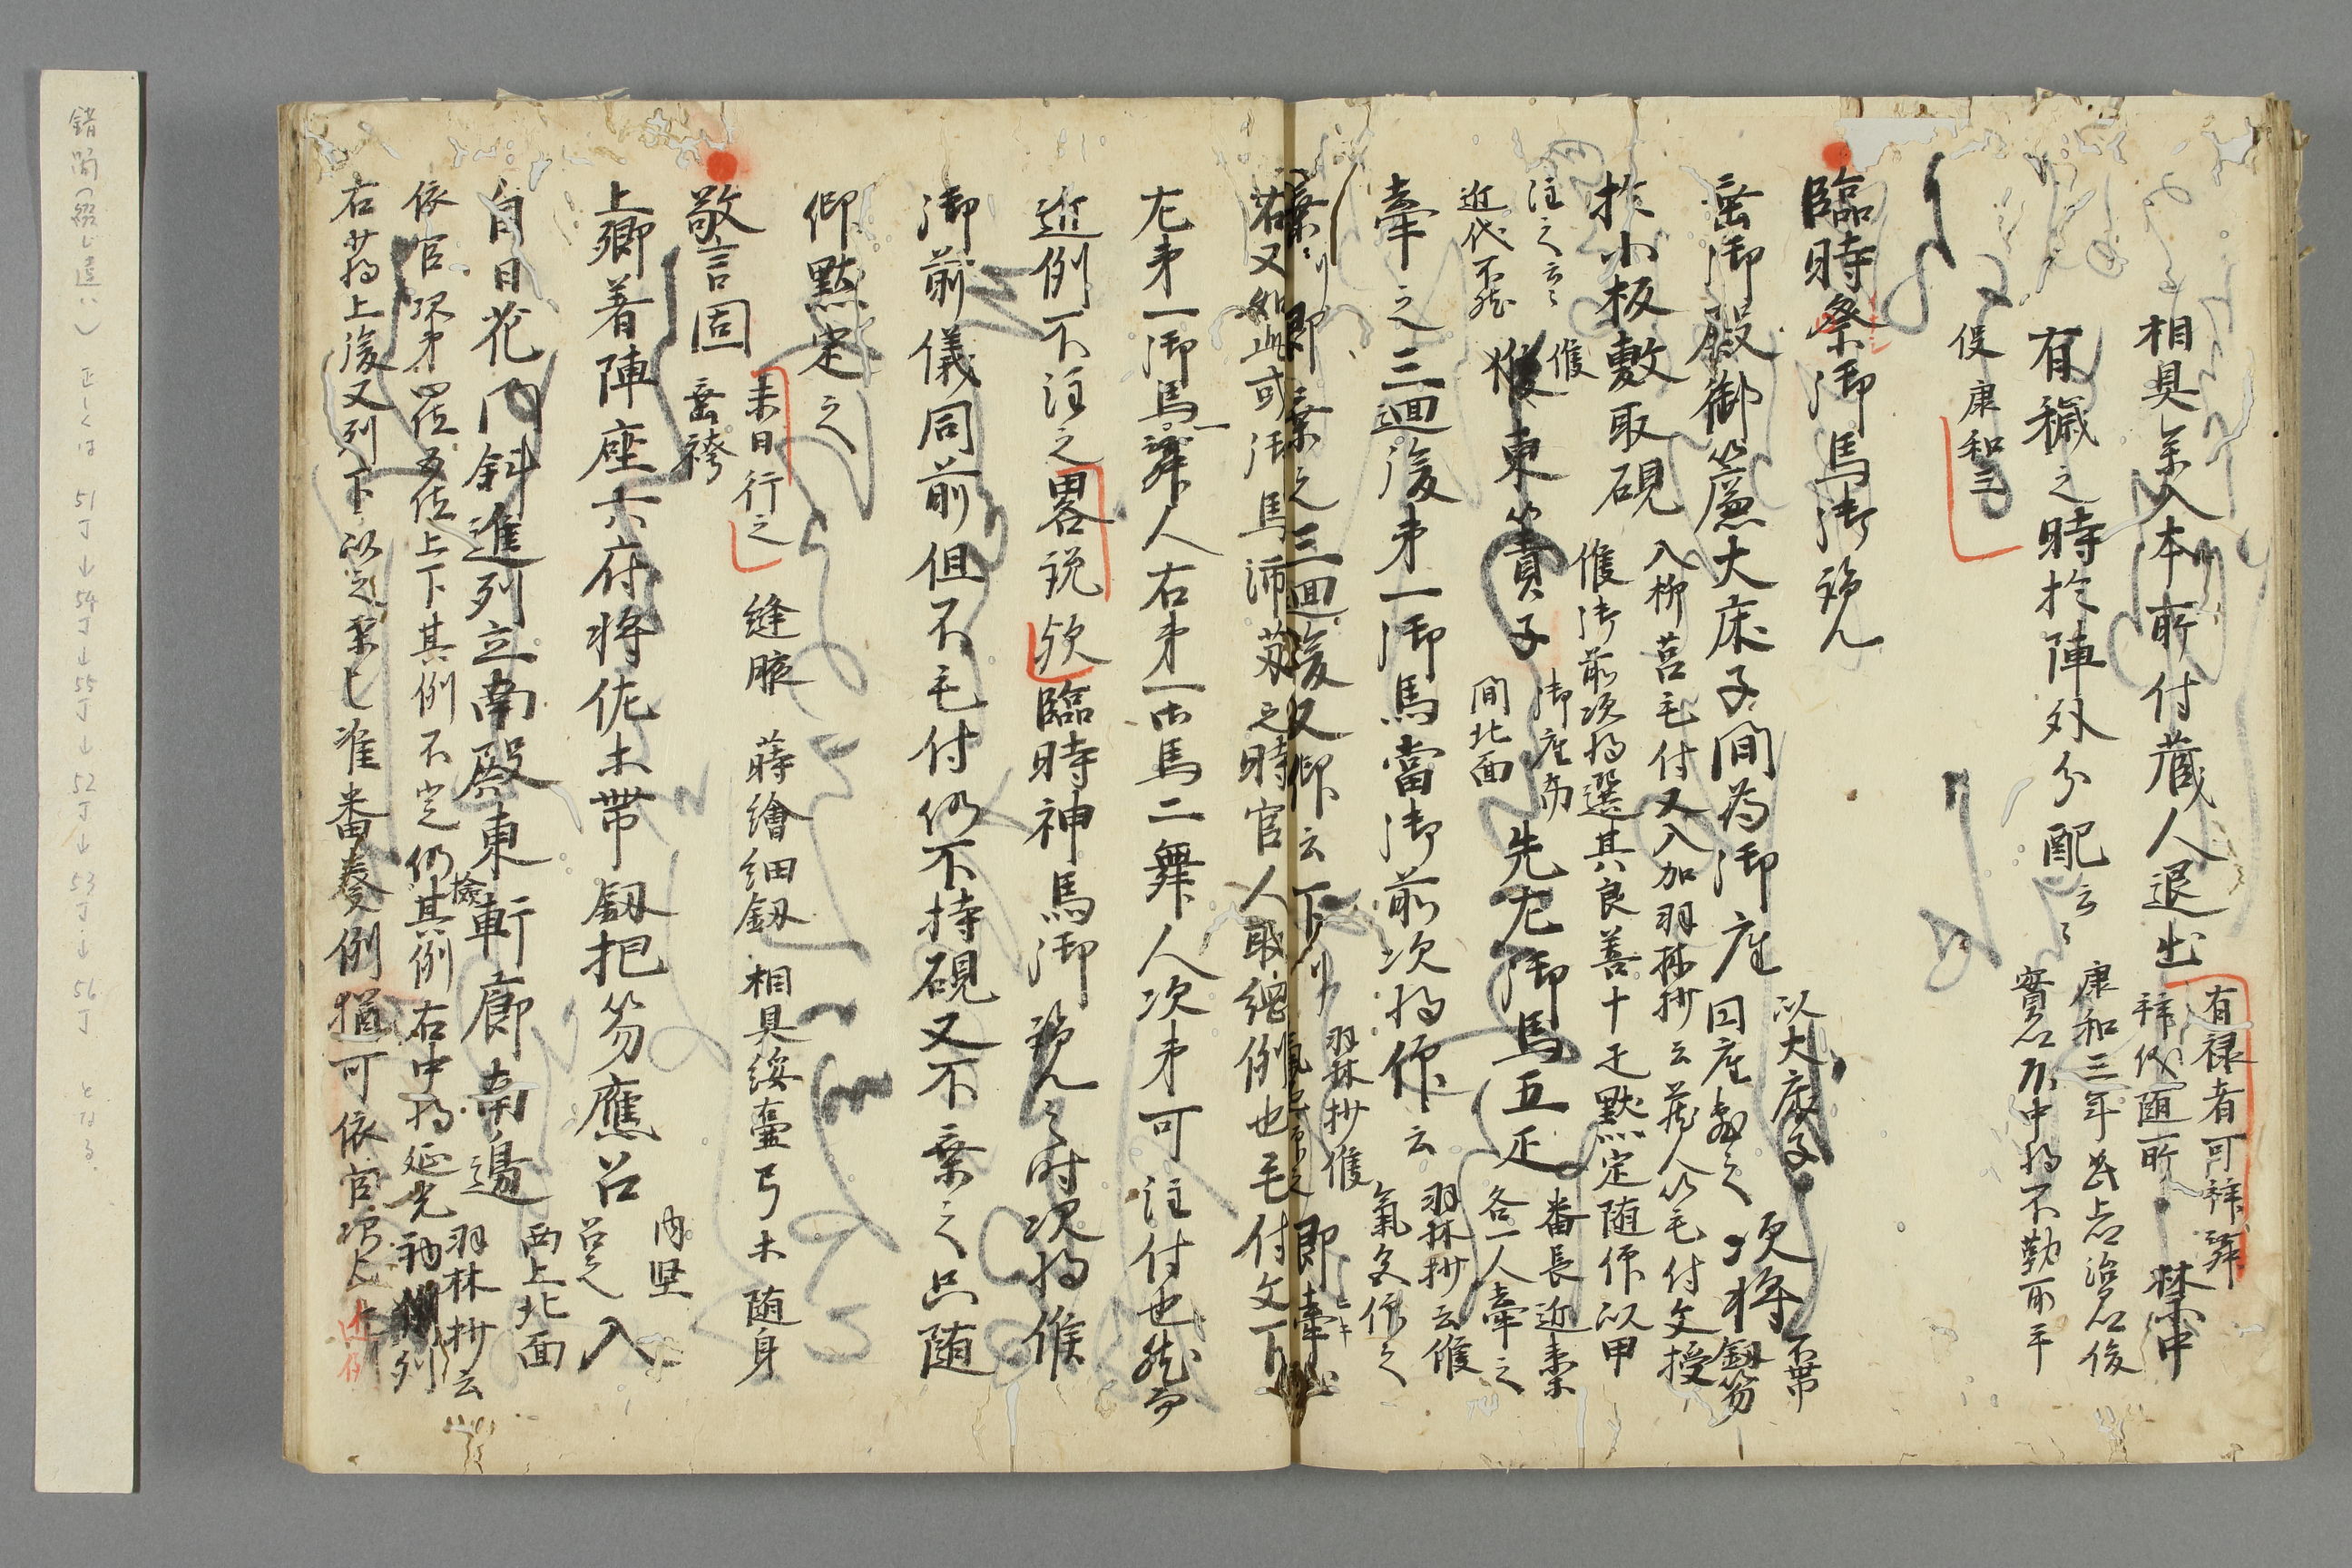 相具参入本所付蔵人退出
有禄者可拝舞
拝後随所
禁中
有穢之時於陣外分配云々
康和三年
康和三
臨時祭御馬御覧
垂御殿御簾大床子間為御座
以大床子
次将
不帯
釼笏
於小板敷取硯
入柳筥毛付又入加羽林抄云蔵人以毛付文授
候御前次将選其良善十疋點定随仰以甲
注之云々
近代不然
候東簀子
御座
間北面
先左御馬五疋
番長近衛
各一人牽之
牽之三迴後第一御馬當御前次将仰云
羽林抄云候
氣色仰之
乗〻即乗之三迴後又仰云下〻
羽林抄候
即牽
右又如此或御馬沛艾之時官人取綱例也毛付文下
左第一御馬舞人右第一御馬二舞人次第可注付也然而
近例不注之畧説欤臨時神馬御覧之時次将候
御前儀同前但不毛付仍不持硯又不乗之只随
仰點定之
警固
未日行之
垂袴
縫腋 蒔繪細釼 相具綏壷弓木随身
上卿着陣座六府将佐木帯釼把笏應召
内竪
召之
入
自日花門斜進列立南殿東軒廊南邊
西上北面
羽林抄云
依官次第四位五位上下其例不定仍檢其例右中将延光朝列
右将上後又列下以之案之准番奏例猶可依官次
錯簡(綴じ違い) 正しくは 51丁→54丁→55丁→52丁→53丁→56丁 となる。